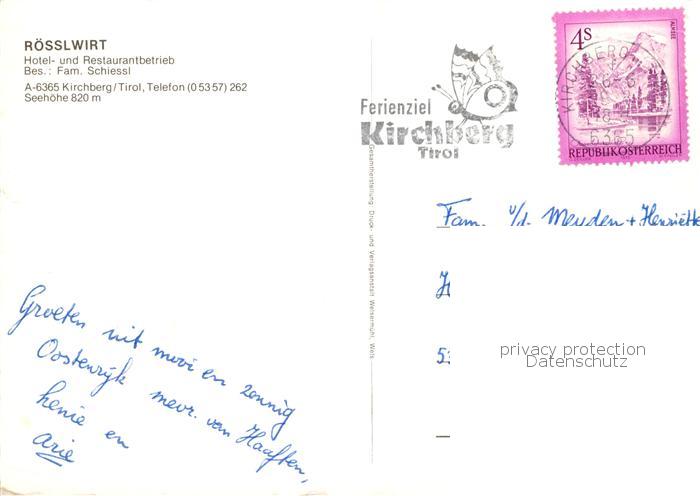 RÖSSLWIRT
Hotel- und Restaurantbetrieb
Bes.: Fam. Schiessl
A-6365 Kirchberg/Tirol, Telefon (0 53 57) 262
Seehöhe 820 m
Ferienziel
Kirchberg
Tirol
4S
ALMSEE
KIRCHBERG
6365
REPUBLIK ÖSTERREICH
Gesamtherstellung: Druck- und Verlagsanstalt Welsermühl, Wels
Fam. v/d. Meuden + Henriette
privacy protection
Datenschutz
Groeten uit mooi en zonnig
Oostenrijk mevr. van Haaften,
henie en
Arie